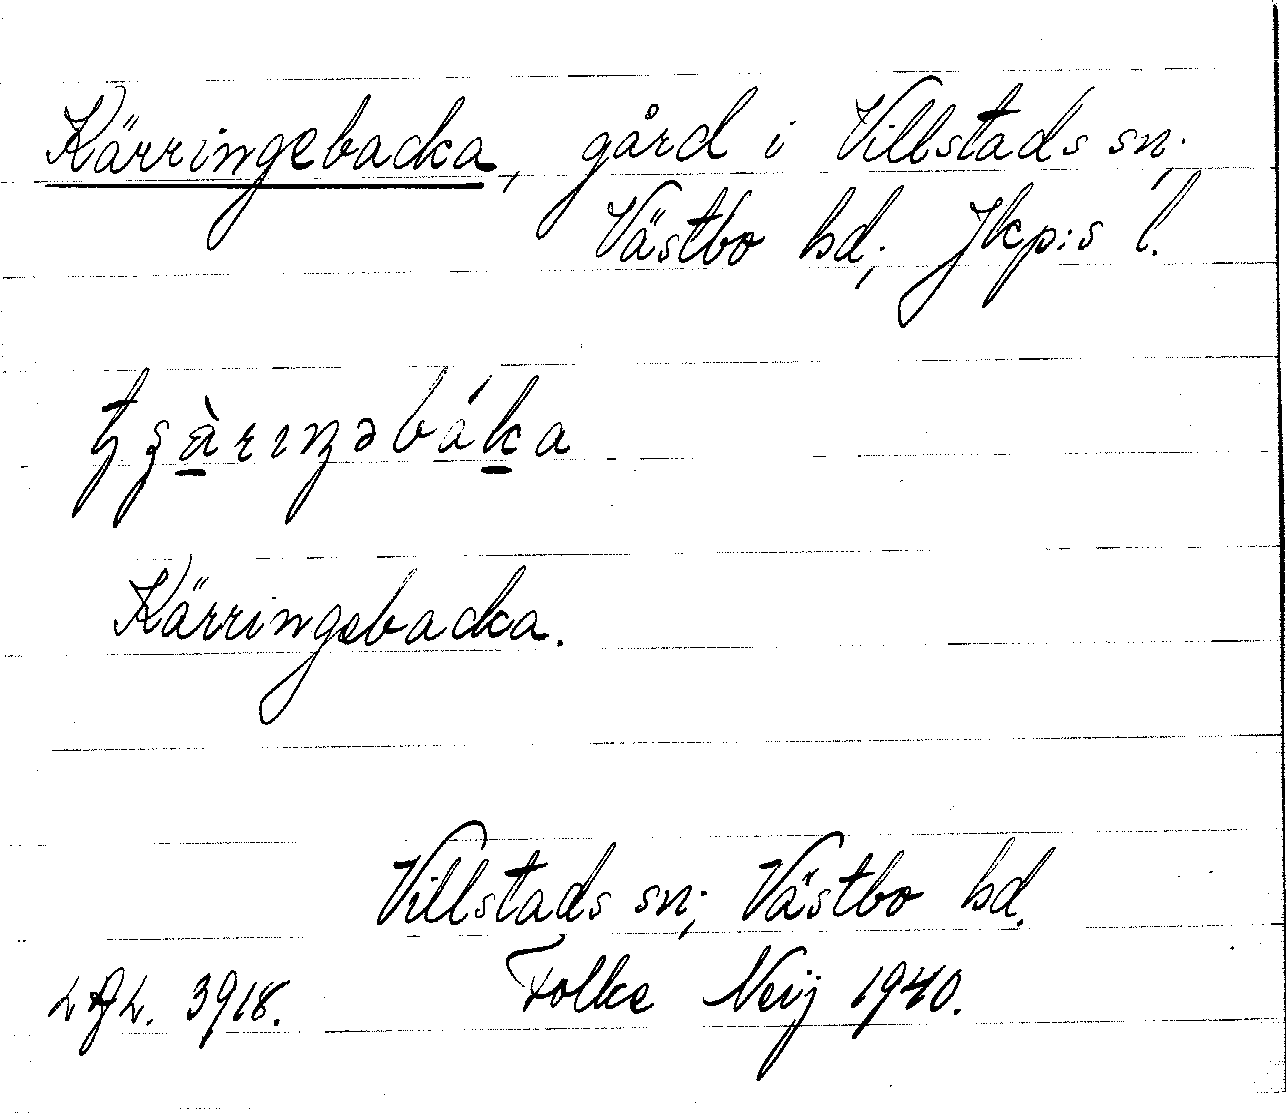 Kärringebacka, gård i Villstads sn.,
Västbo hd., Jkp:s l.
Kärringebacka.
Villstads sn., Västbo hd.
3918. Folke Neij 1940.